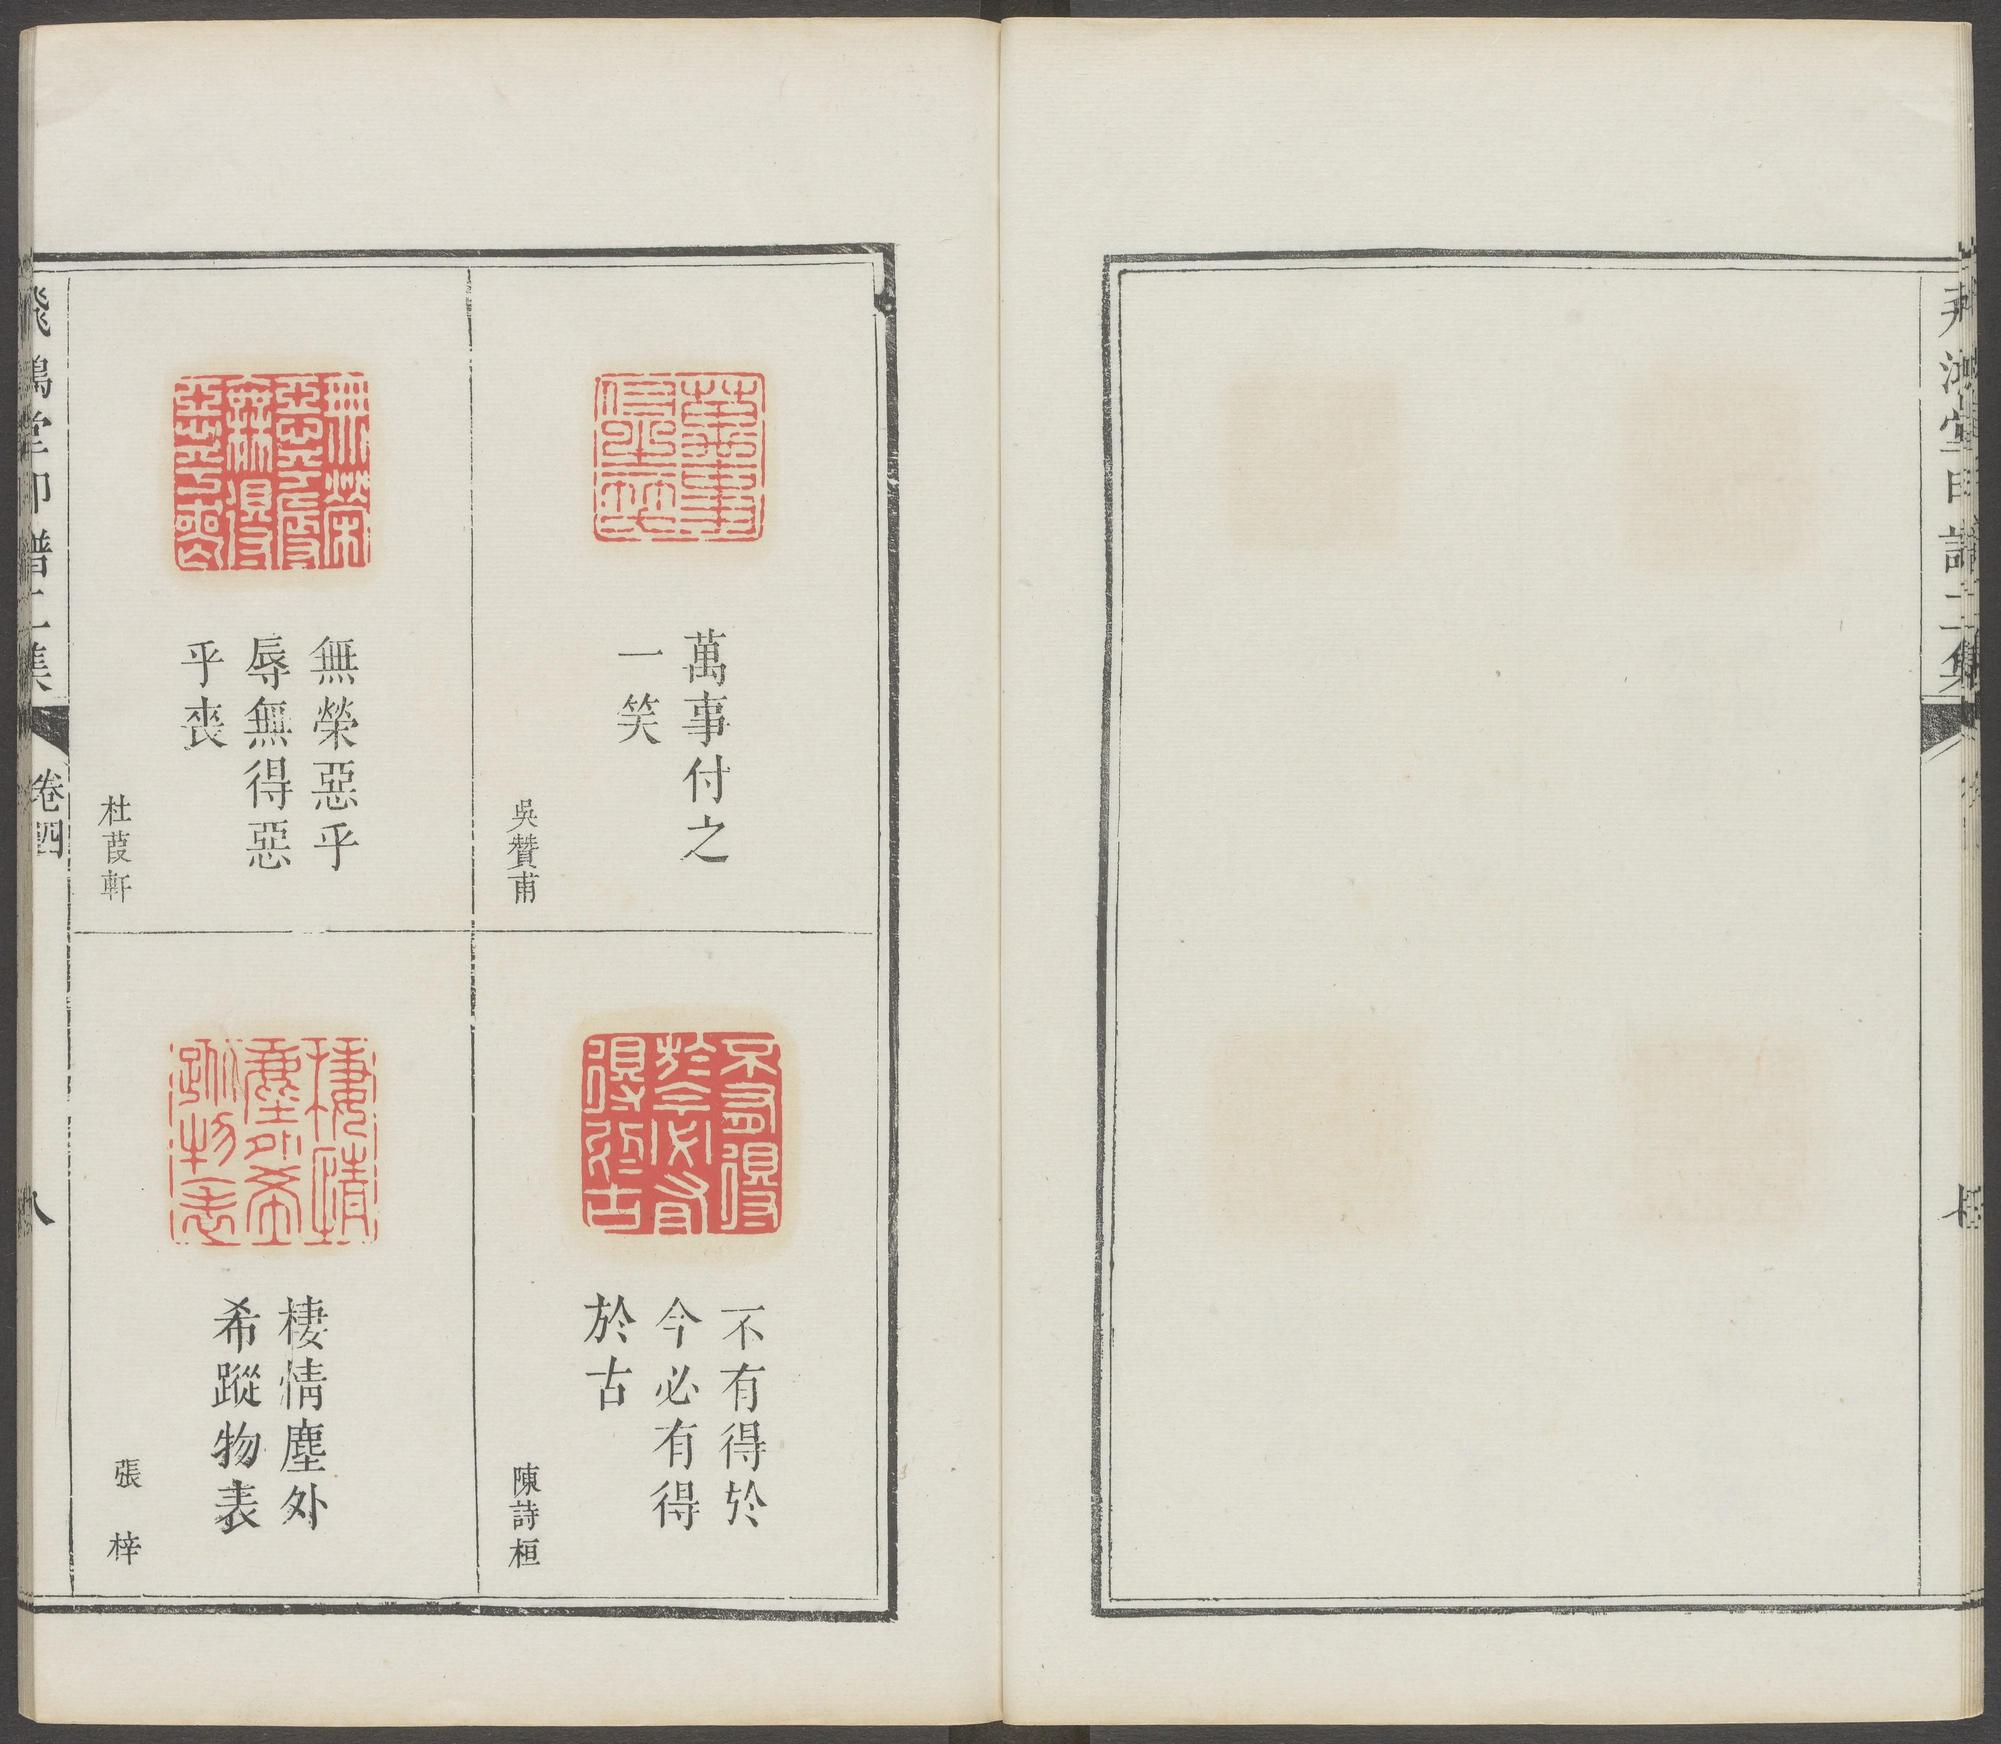 飛鴻堂印譜二集
七
萬事付之
一笑
吳贊甫
不有得於
今必有得
於古
陳詩桓
無榮惡乎
辱無得惡
乎喪
杜葭軒
棲情塵外
希蹤物表
張梓
飛鴻堂印譜二集
卷四
八